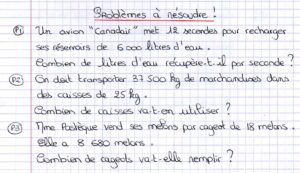 Problèmes à résoudre !
P1 Un avion "Canadair" met 12 secondes pour recharger
ses réservoirs de 6 000 litres d'eau.
Combien de litres d'eau récupère-t-il par seconde ?
P2 On doit transporter 37 500 kg de marchandises dans
des caisses de 25 kg.
Combien de caisses va-t-on utiliser ?
P3 Mme Pastèque vend ses melons par cageot de 18 melons.
Elle a 8 680 melons.
Combien de cageots va-t-elle remplir ?